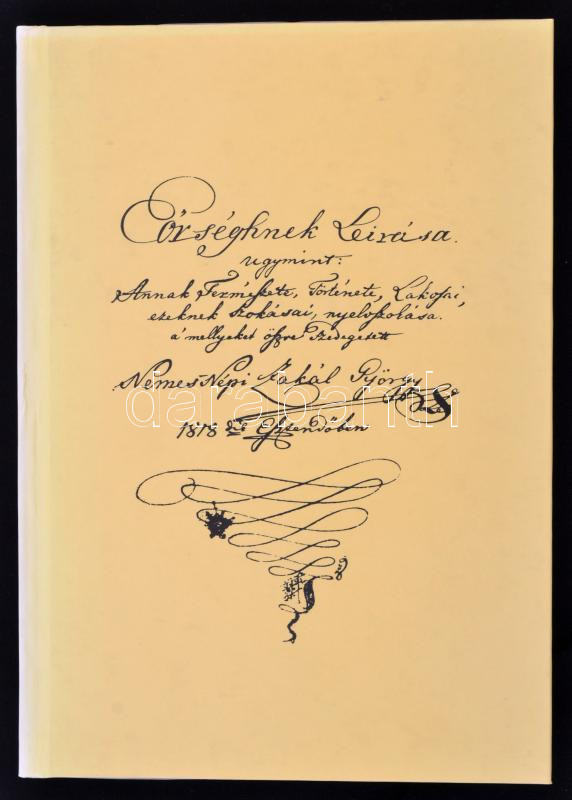 Eőrséghnek Leirása.
ugymint:
Annak Termeſzete, Törtenete, Lakosai,
ezeknek szokásai, nyelvszolása.
a' mellyeket öſzve szedegetett
Nemes-Népi Zakál György
1818 Esztendőben
darabanth